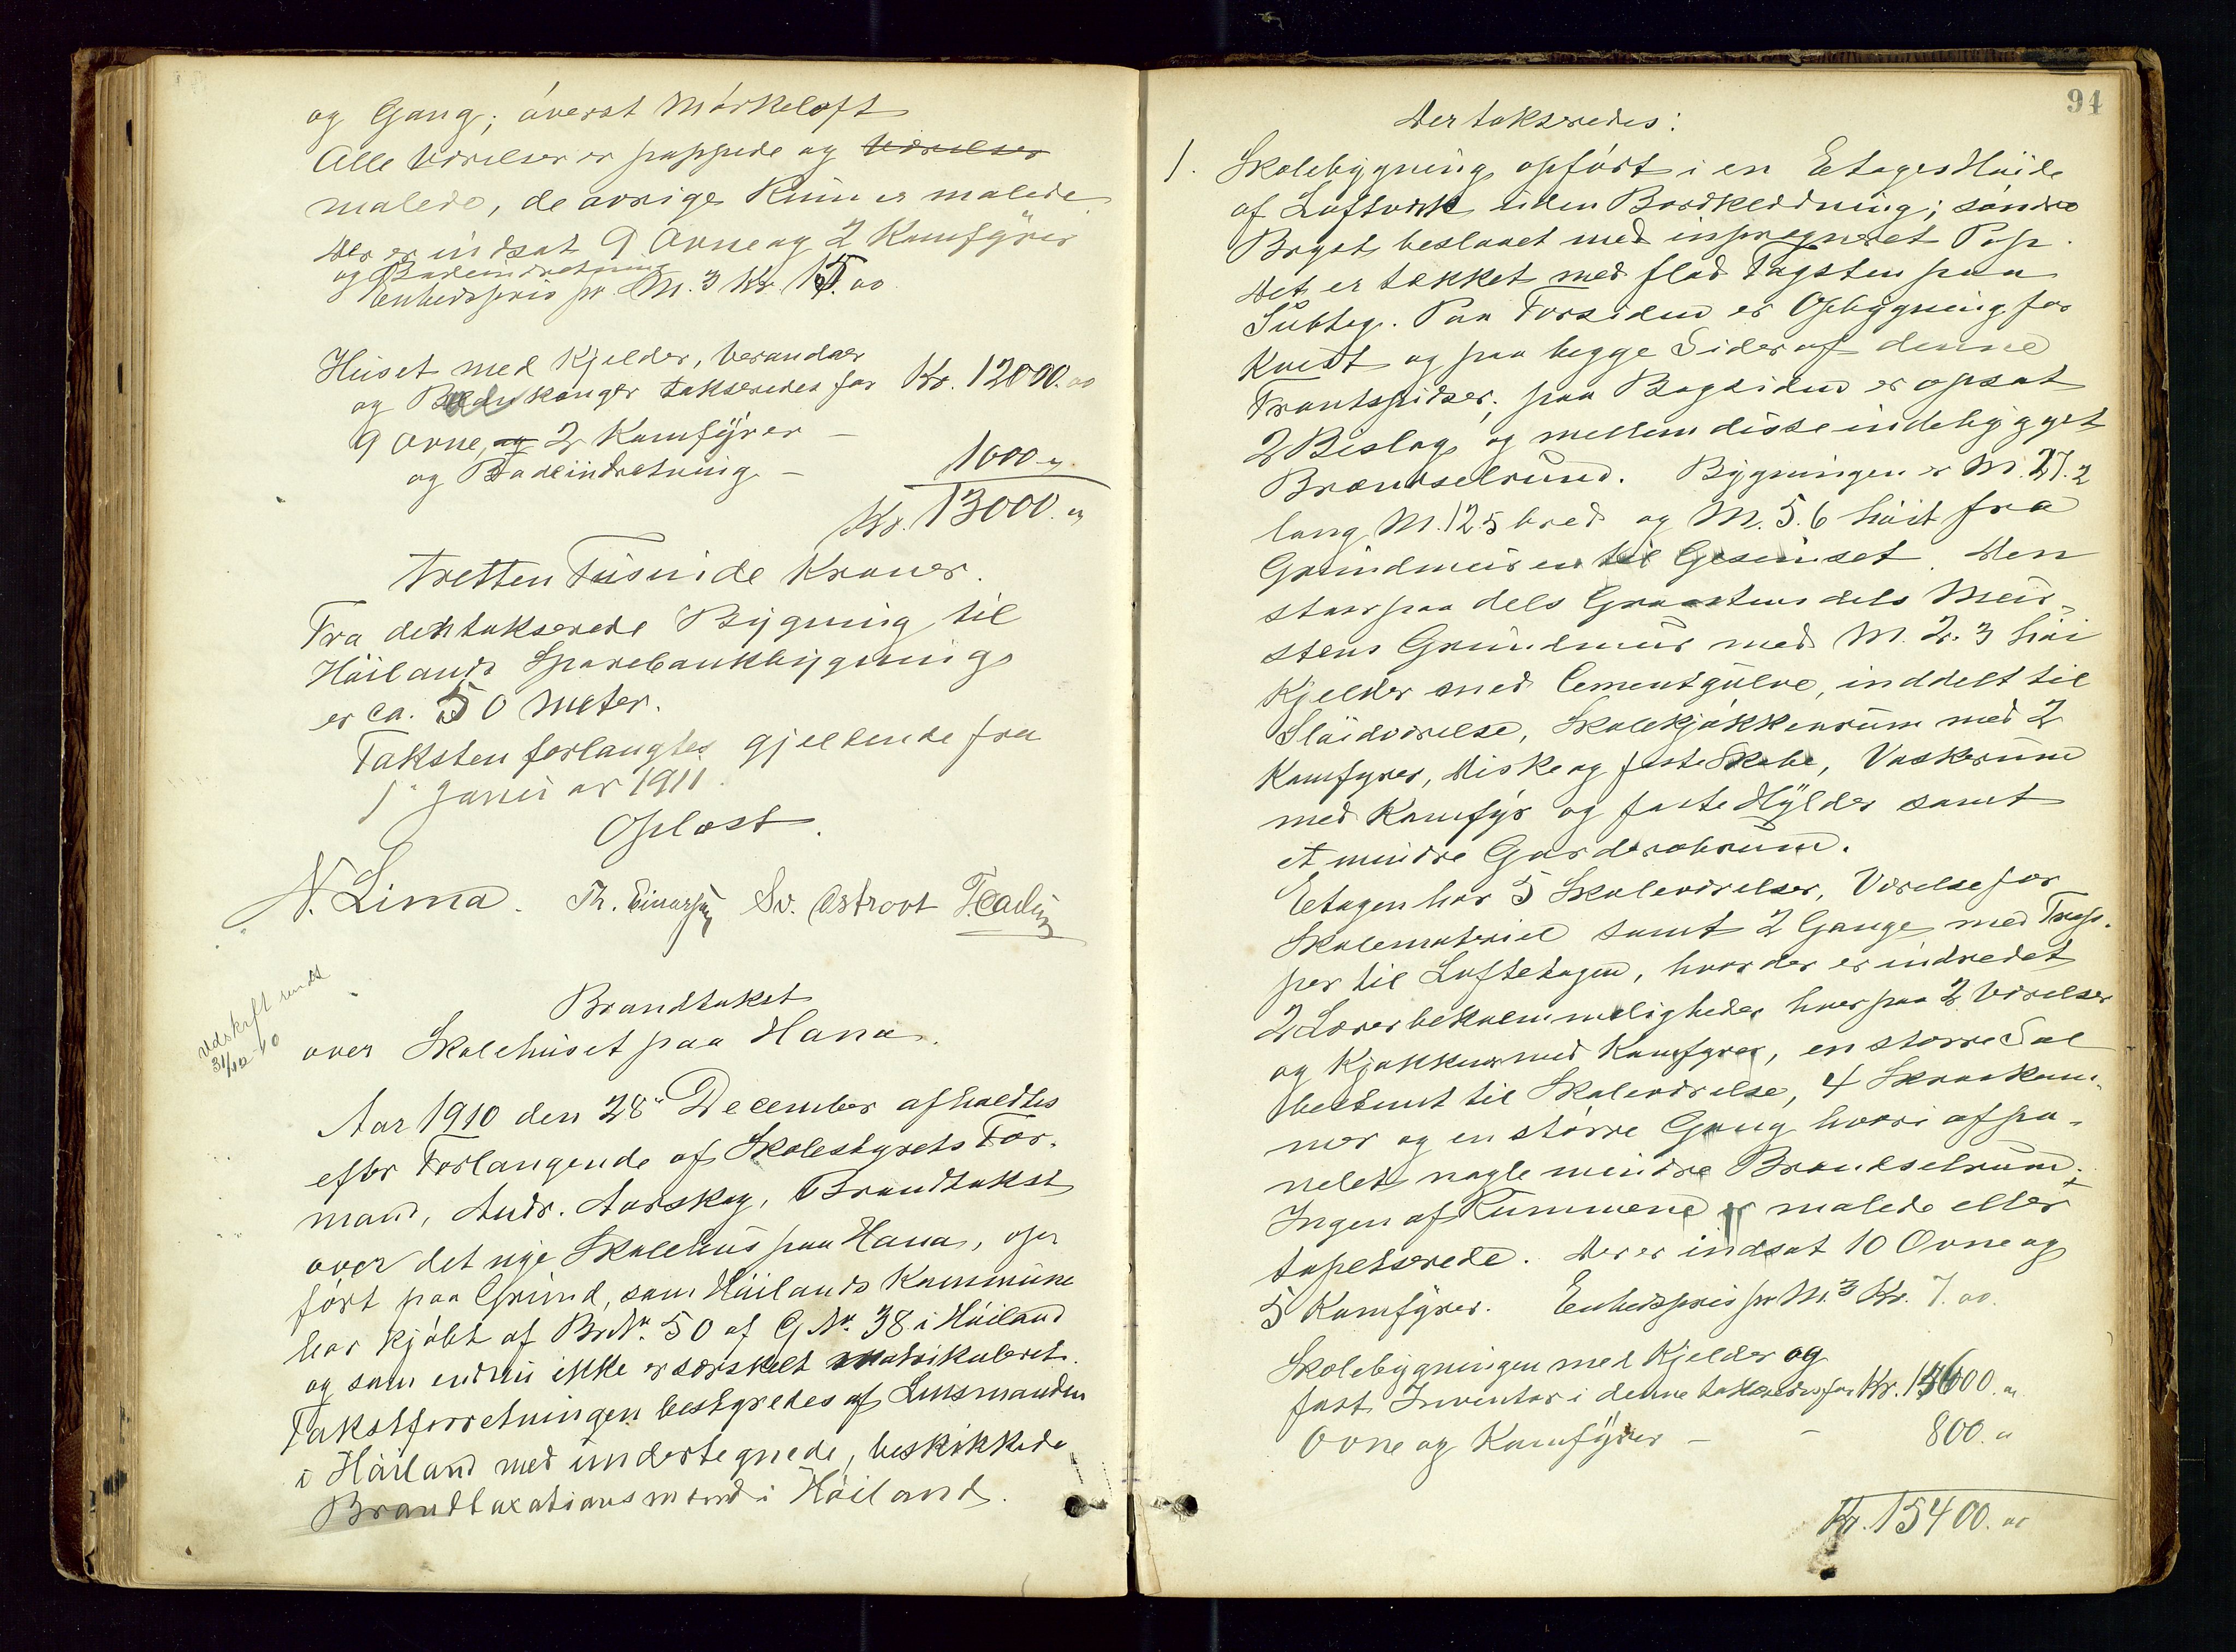 og Gang; øverst Mørkeloft
Alle Værelser er pappede og Værelser
malede, de øvrige Rum er malede
Der er indsat 9 Ovne og 2 Komfyrer
og Badeindretning
Enhedspris pr. M.3 Kr. 15.00
Huset med Kjelder, Verandaer
og Balkonger takseredes for Kr. 12000.00
9 Ovne, og 2 Komfyrer –
og Badeindretning – 1000 „
Kr. 13000.„
Tretten Tusinde Kroner.
Fra den takserede Bygning til
Høilands Sparebankbygning
er ca. 50 Meter.
Taksten forlangtes gjeldende fra
1. Januar 1911.
Oplæst.
N. Lima. Th. Einarsen Sv. Østrovt
Udskrift sendt
31/12-10
Brandtakst
over Skolehuset paa Hana.
Aar 1910 den 28" December afholdtes
efter Forlangende af Skolestyrets For-
mand, Andr. Aarskog, Brandtakst
over det nye Skolehus paa Hana, op-
ført paa Grund, som Høilands Kommune
har kjøbt af Br.Nr. 50 af G.Nr. 38 i Høiland
og som endnu ikke er særskilt matrikuleret.
Takstforretningen bestyredes af Lensmanden
i Høiland med undertegnede, beskikkede
Brandtaxationsmænd i Høiland.
94
Der takseredes:
1. Skolebygning opført i en Etages Høide
af Loftværk uden Bordklædning; søndre
Bryst beslaaet med inpregneret Pap.
Det er tækket med flad Tagsten paa
Subtag. Paa Forsiden er Opbygning for
Kvist og paa begge Sider af denne
Frontspidser; paa Bagsiden er opsat
2 Bislag og mellem disse indebygget
Brændselrum. Bygningen er M. 27.2
lang M. 12.5 bred og M. 5.6 høit fra
Grundmuren til Gesimset. Den
staar paa dels Graasten dels Mur-
stens Grundmur med M. 2.3 høi
Kjelder med Cementgulve, inddelt til
Sløidværelse, Skolekjøkkenrum med 2
Komfyrer, Diske og faste Skabe, Vaskerum
med Komfyr og faste Hylder samt
et mindre Garderoberum.
Etagen har 5 Skoleværelser, Værelse for
Skolemateriel samt 2 Gange med Trap-
per til Loftetagen, hvor der er indredet
2 Lærerbekvemmeligheder hver paa 2 Værelser
og Kjøkken med Komfyrer, en større Sal
bestemt til Skoleværelse, 4 Skraakam-
mer og en større Gang hvori afpa-
nelet nogle mindre Brændselrum;
Ingen af Rummene er malede eller
tapetserede. Der er indsat 10 Ovne og
5 Komfyrer. Enhedspris pr M.3 Kr. 7.00.
Skolebygningen med Kjelder og
fast Inventar i denne takseredes for Kr. 14600.„
Ovne og Komfyrer – – 800.„
Kr. 15400.00